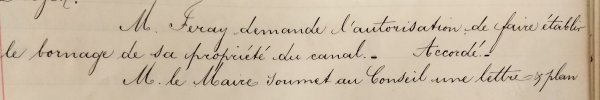 M. Feray demande l'autorisation de faire établir
le bornage de sa propriété du canal. _ Accordé. _
M. le Maire soumet au Conseil une lettre & plan